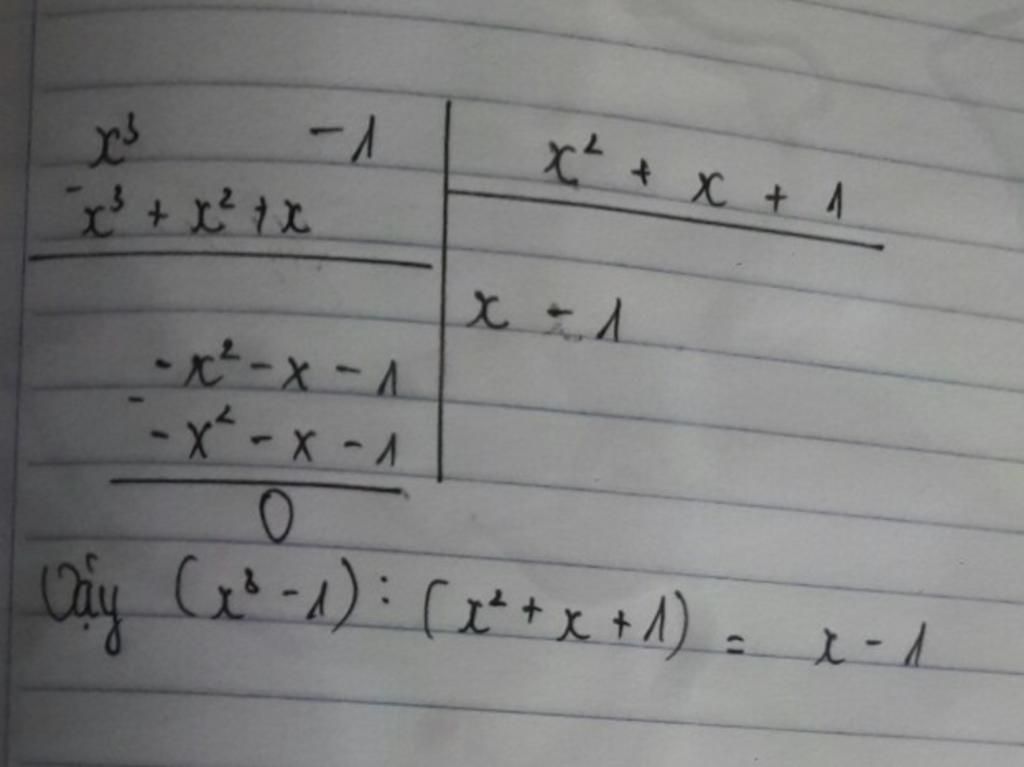 x³ - 1
x² + x + 1
- x³ + x² + x
x - 1
-x² - x - 1
- -x² - x - 1
0
Vậy (x³ - 1) : (x² + x + 1) = x - 1